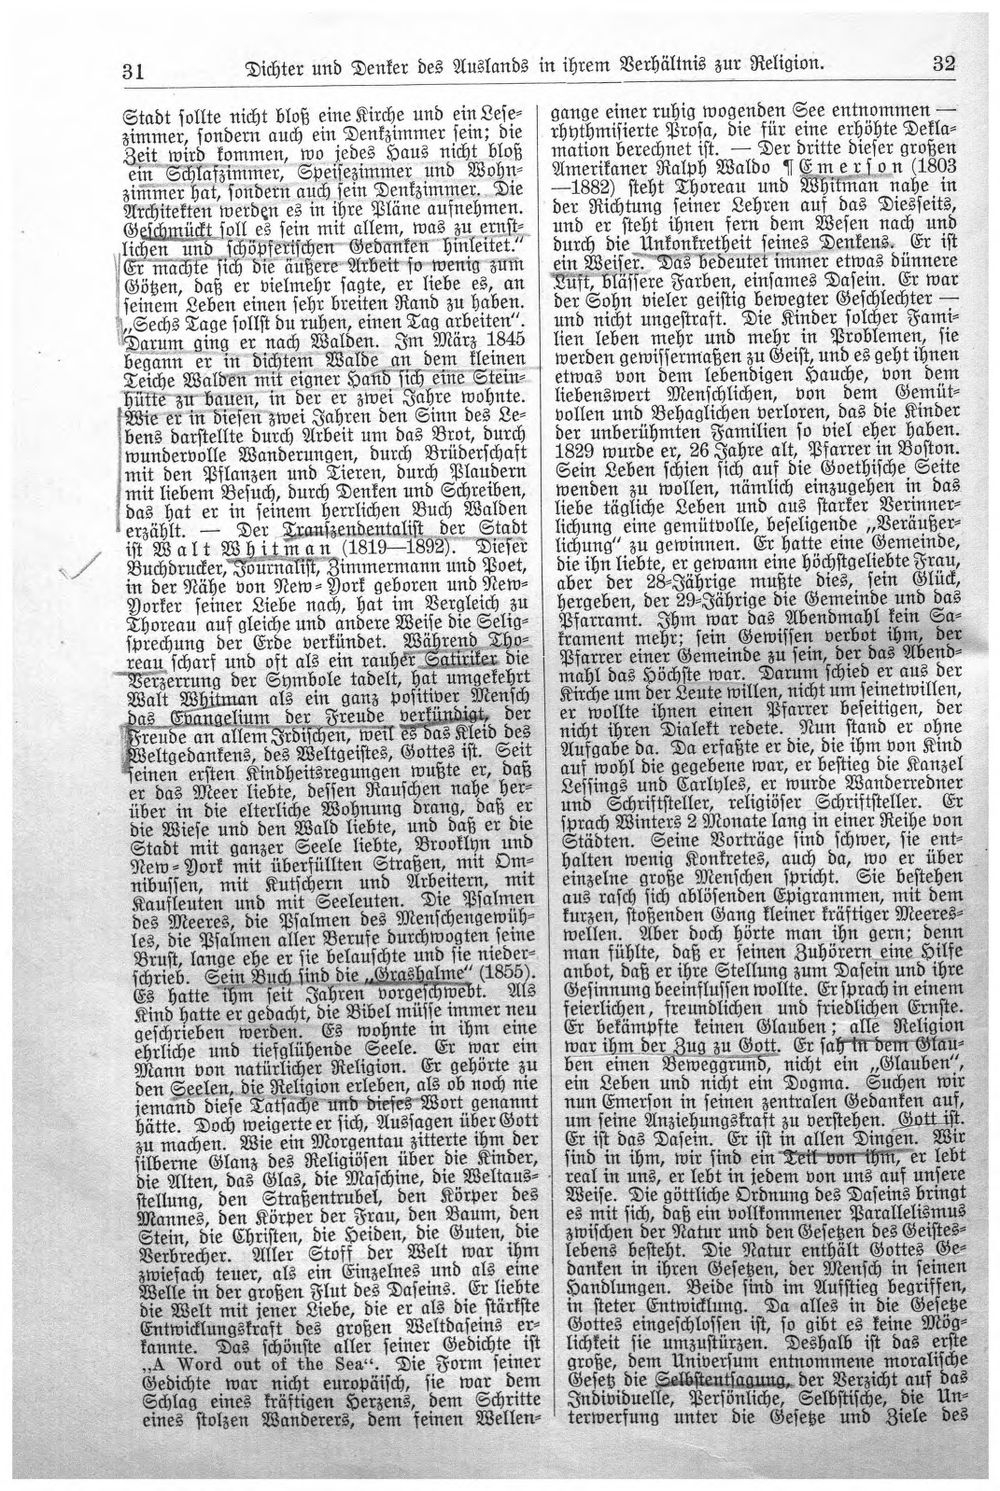 31
Dichter und Denker des Auslands in ihrem Verhältnis zur Religion.
32
Stadt sollte nicht bloß eine Kirche und ein Lese-
zimmer, sondern auch ein Denkzimmer sein; die
Zeit wird kommen, wo jedes Haus nicht bloß
ein Schlafzimmer, Speisezimmer und Wohn-
zimmer hat, sondern auch sein Denkzimmer. Die
Architekten werden es in ihre Pläne aufnehmen.
Geschmückt soll es sein mit allem, was zu ernst-
lichen und schöpferischen Gedanken hinleitet.“
Er machte sich die äußere Arbeit so wenig zum
Götzen, daß er vielmehr sagte, er liebe es, an
seinem Leben einen sehr breiten Rand zu haben.
„Sechs Tage sollst du ruhen, einen Tag arbeiten“.
Darum ging er nach Walden. Im März 1845
begann er in dichtem Walde an dem kleinen
Teiche Walden mit eigner Hand sich eine Stein-
hütte zu bauen, in der er zwei Jahre wohnte.
Wie er in diesen zwei Jahren den Sinn des Le-
bens darstellte durch Arbeit um das Brot, durch
wundervolle Wanderungen, durch Brüderschaft
mit den Pflanzen und Tieren, durch Plaudern
mit liebem Besuch, durch Denken und Schreiben,
das hat er in seinem herrlichen Buch Walden
erzählt. — Der Transzendentalist der Stadt
ist Walt Whitman (1819—1892). Dieser
Buchdrucker, Journalist, Zimmermann und Poet,
in der Nähe von New-York geboren und New-
Yorker seiner Liebe nach, hat im Vergleich zu
Thoreau auf gleiche und andere Weise die Selig-
sprechung der Erde verkündet. Während Tho-
reau scharf und oft als ein rauher Satiriker die
Verzerrung der Symbole tadelt, hat umgekehrt
Walt Whitman als ein ganz positiver Mensch
das Evangelium der Freude verkündigt, der
Freude an allem Irdischen, weil es das Kleid des
Weltgedankens, des Weltgeistes, Gottes ist. Seit
seinen ersten Kindheitsregungen wußte er, daß
er das Meer liebte, dessen Rauschen nahe her-
über in die elterliche Wohnung drang, daß er
die Wiese und den Wald liebte, und daß er die
Stadt mit ganzer Seele liebte, Brooklyn und
New-York mit überfüllten Straßen, mit Om-
nibussen, mit Kutschern und Arbeitern, mit
Kaufleuten und mit Seeleuten. Die Psalmen
des Meeres, die Psalmen des Menschengewüh-
les, die Psalmen aller Berufe durchwogten seine
Brust, lange ehe er sie belauschte und sie nieder-
schrieb. Sein Buch sind die „Grashalme“ (1855).
Es hatte ihm seit Jahren vorgeschwebt. Als
Kind hatte er gedacht, die Bibel müsse immer neu
geschrieben werden. Es wohnte in ihm eine
ehrliche und tiefglühende Seele. Er war ein
Mann von natürlicher Religion. Er gehörte zu
den Seelen, die Religion erleben, als ob noch nie
jemand diese Tatsache und dieses Wort genannt
hätte. Doch weigerte er sich, Aussagen über Gott
zu machen. Wie ein Morgentau zitterte ihm der
silberne Glanz des Religiösen über die Kinder,
die Alten, das Glas, die Maschine, die Weltaus-
stellung, den Straßentrubel, den Körper des
Mannes, den Körper der Frau, den Baum, den
Stein, die Christen, die Heiden, die Guten, die
Verbrecher. Aller Stoff der Welt war ihm
zwiefach teuer, als ein Einzelnes und als eine
Welle in der großen Flut des Daseins. Er liebte
die Welt mit jener Liebe, die er als die stärkste
Entwicklungskraft des großen Weltdaseins er-
kannte. Das schönste aller seiner Gedichte ist
„A Word out of the Sea“. Die Form seiner
Gedichte war nicht europäisch, sie war dem
Schlag eines kräftigen Herzens, dem Schritte
eines stolzen Wanderers, dem feinen Wellen-
gange einer ruhig wogenden See entnommen —
rhythmisierte Prosa, die für eine erhöhte Dekla-
mation berechnet ist. — Der dritte dieser großen
Amerikaner Ralph Waldo ¶ Emerson (1803
—1882) steht Thoreau und Whitman nahe in
der Richtung seiner Lehren auf das Diesseits,
und er steht ihnen fern dem Wesen nach und
durch die Unkonkretheit seines Denkens. Er ist
ein Weiser. Das bedeutet immer etwas dünnere
Luft, blässere Farben, einsames Dasein. Er war
der Sohn vieler geistig bewegter Geschlechter —
und nicht ungestraft. Die Kinder solcher Fami-
lien leben mehr und mehr in Problemen, sie
werden gewissermaßen zu Geist, und es geht ihnen
etwas von dem lebendigen Hauche, von dem
liebenswert Menschlichen, von dem Gemüt-
vollen und Behaglichen verloren, das die Kinder
der unberühmten Familien so viel eher haben.
1829 wurde er, 26 Jahre alt, Pfarrer in Boston.
Sein Leben schien sich auf die Goethische Seite
wenden zu wollen, nämlich einzugehen in das
liebe tägliche Leben und aus starker Verinner-
lichung eine gemütvolle, beseligende „Veräußer-
lichung“ zu gewinnen. Er hatte eine Gemeinde,
die ihn liebte, er gewann eine höchstgeliebte Frau,
aber der 28-Jährige mußte dies, sein Glück,
hergeben, der 29-Jährige die Gemeinde und das
Pfarramt. Ihm war das Abendmahl kein Sa-
krament mehr; sein Gewissen verbot ihm, der
Pfarrer einer Gemeinde zu sein, der das Abend-
mahl das Höchste war. Darum schied er aus der
Kirche um der Leute willen, nicht um seinetwillen,
er wollte ihnen einen Pfarrer beseitigen, der
nicht ihren Dialekt redete. Nun stand er ohne
Aufgabe da. Da erfaßte er die, die ihm von Kind
auf wohl die gegebene war, er bestieg die Kanzel
Lessings und Carlyles, er wurde Wanderredner
und Schriftsteller, religiöser Schriftsteller. Er
sprach Winters 2 Monate lang in einer Reihe von
Städten. Seine Vorträge sind schwer, sie ent-
halten wenig Konkretes, auch da, wo er über
einzelne große Menschen spricht. Sie bestehen
aus rasch sich ablösenden Epigrammen, mit dem
kurzen, stoßenden Gang kleiner kräftiger Meeres-
wellen. Aber doch hörte man ihn gern; denn
man fühlte, daß er seinen Zuhörern eine Hilfe
anbot, daß er ihre Stellung zum Dasein und ihre
Gesinnung beeinflussen wollte. Er sprach in einem
feierlichen, freundlichen und friedlichen Ernste.
Er bekämpfte keinen Glauben; alle Religion
war ihm der Zug zu Gott. Er sah in dem Glau-
ben einen Beweggrund, nicht ein „Glauben“,
ein Leben und nicht ein Dogma. Suchen wir
nun Emerson in seinen zentralen Gedanken auf,
um seine Anziehungskraft zu verstehen. Gott ist.
Er ist das Dasein. Er ist in allen Dingen. Wir
sind in ihm, wir sind ein Teil von ihm, er lebt
real in uns, er lebt in jedem von uns auf unsere
Weise. Die göttliche Ordnung des Daseins bringt
es mit sich, daß ein vollkommener Parallelismus
zwischen der Natur und den Gesetzen des Geistes-
lebens besteht. Die Natur enthält Gottes Ge-
danken in ihren Gesetzen, der Mensch in seinen
Handlungen. Beide sind im Aufstieg begriffen,
in steter Entwicklung. Da alles in die Gesetze
Gottes eingeschlossen ist, so gibt es keine Mög-
lichkeit sie umzustürzen. Deshalb ist das erste
große, dem Universum entnommene moralische
Gesetz die Selbstentsagung, der Verzicht auf das
Individuelle, Persönliche, Selbstische, die Un-
terwerfung unter die Gesetze und Ziele des